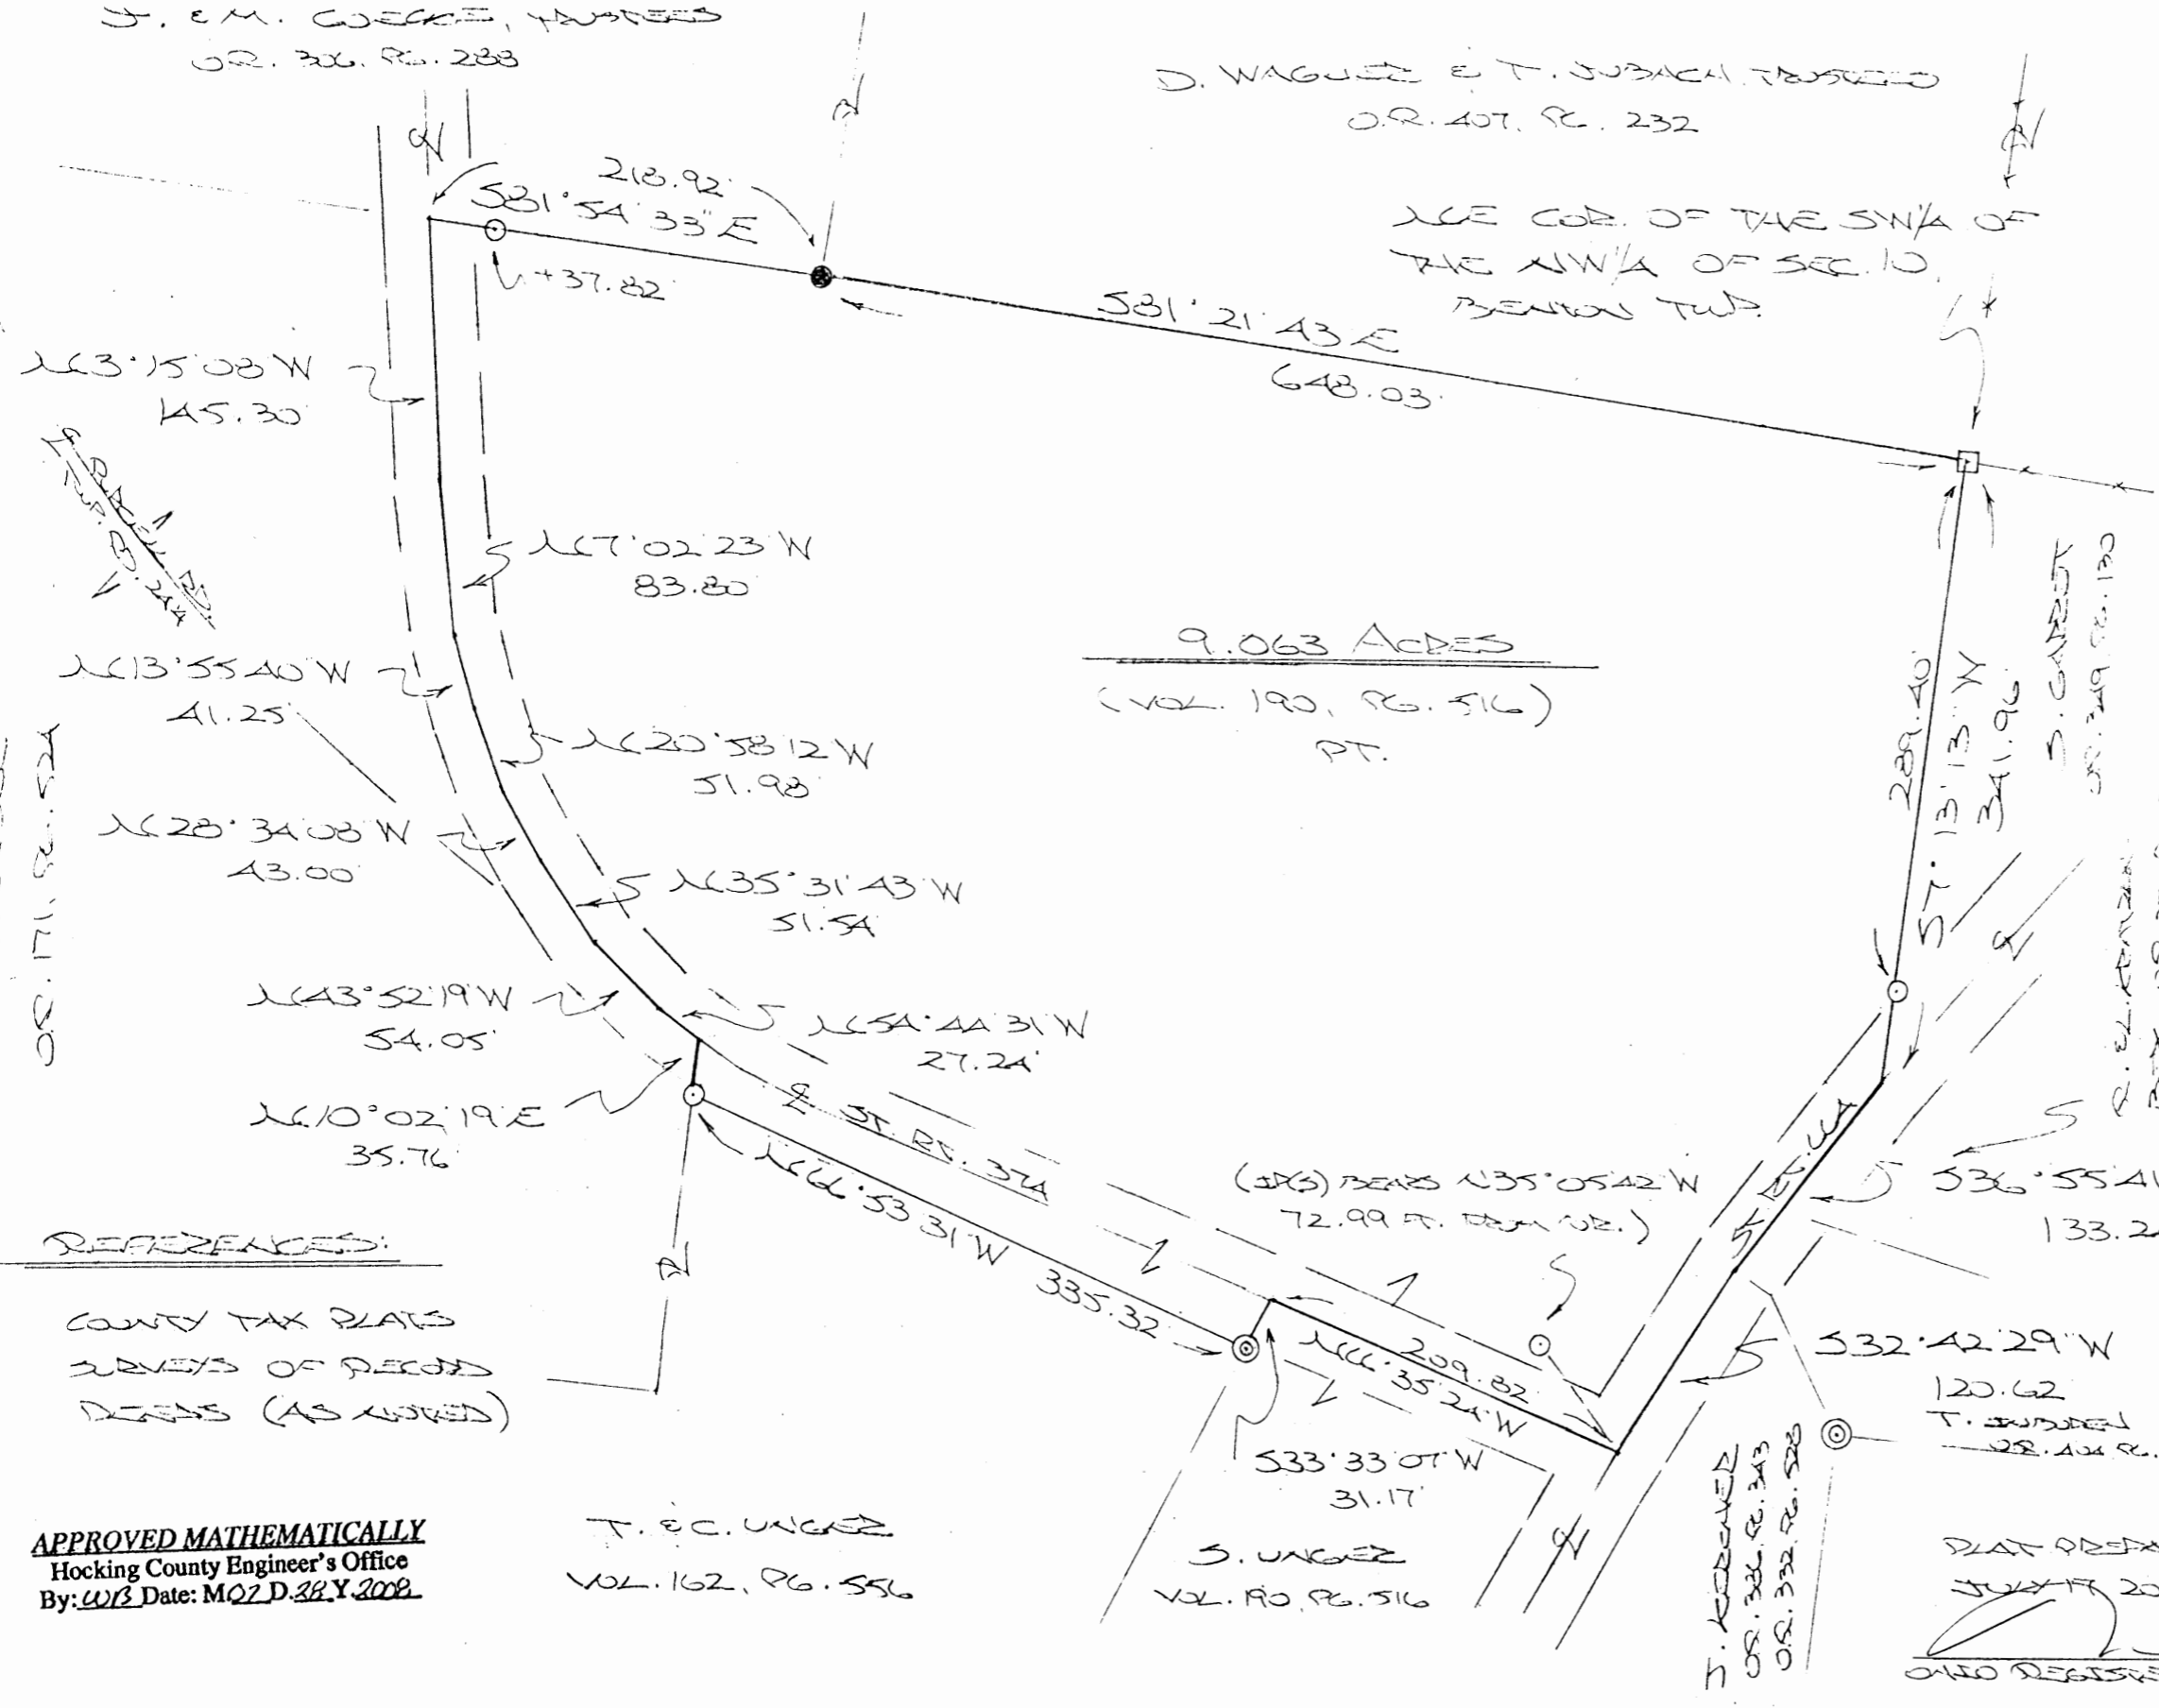 J. & M. GOECKE, TRUSTEES
O.R. 306, PG. 288
D. WAGNER & T. JUBACH, TRUSTEES
O.R. 407, PG. 232
218.92'
S81°54'33"E
+37.82'
NE COR. OF THE SW/4 OF
THE NW/4 OF SEC. 10,
BENTON TWP.
S81°21'43"E
648.03'
N63°15'08"W
145.30'
N67°02'23"W
83.80'
9.063 ACRES
(VOL. 190, PG. 516)
PT.
N613°55'40"W
41.25'
N620°58'12"W
51.98'
N628°34'08"W
43.00'
N635°31'43"W
51.54'
N643°52'19"W
54.05'
N654°44'31"W
27.24'
N610°02'19"E
35.76'
O.R. 171, PG. 524
289.40'
S7°13'13"W
341.96'
O.R. 349, PG. 130
℄ ST. RT. 374
N66°53'31"W 335.32'
(IP(S) BEARS N35°05'42"W
72.99 FT. FROM COR.)
ST. RT. 664
S36°55'41
133.2
S32°42'29"W
120.62'
209.82'
N66°35'24"W
S33°33'07"W
31.17'
REFERENCES:
COUNTY TAX PLATS
SURVEYS OF RECORD
DEEDS (AS NOTED)
APPROVED MATHEMATICALLY
Hocking County Engineer's Office
By: WB Date: M07 D.28 Y.2008
T. & C. UNGER
VOL. 162, PG. 556
S. UNGER
VOL. 190, PG. 516
O.R. 386, PG. 343
O.R. 332, PG. 528
PLAT PREPA
JULY 17, 20
OHIO REGISTE